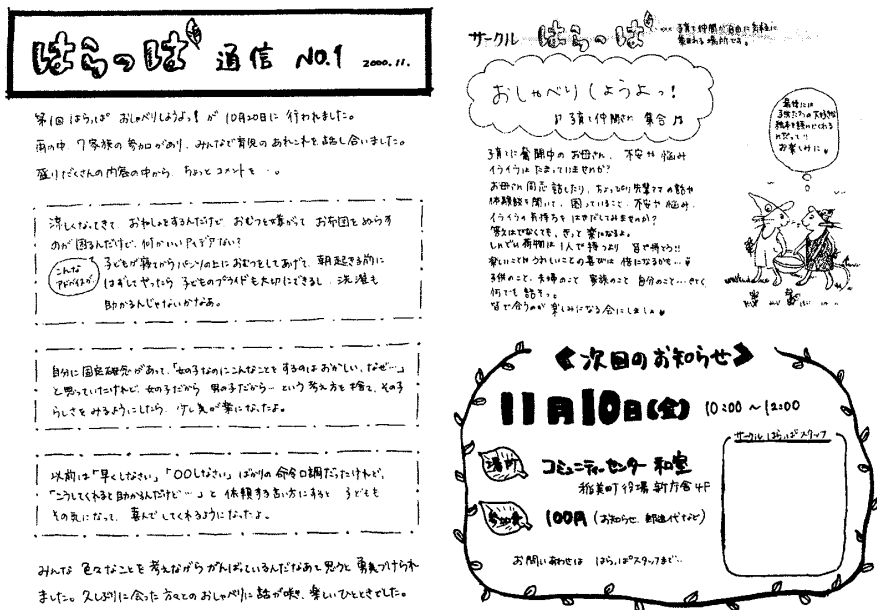 はらっぱ 通信 NO.1 2000.11.
第1回 はらっぱ おしゃべりしようよっ! が 10月20日に 行われました。
雨の中 7家族の 参加があり、みんなで育児の あれこれを 話し合いました。
盛りだくさんの 内容の中から ちょっとコメントを ・。
涼しくなってきて おねしょをするんだけど、おむつを嫌がって お布団をぬらす
のが 困るんだけど、何かいいアイデアない?
こんな
アドバイスが
子どもが寝てからパンツの上におむつをしてあげて、朝起きる前に
はずしてやったら 子どものプライドも大切にできるし、洗濯も
助かるんじゃないかなあ。
自分に固定観念があって、「女の子なのにこんなことを するのは おかしい、なぜ…」
と思っていたけれど、女の子だから 男の子だから… という 考え方を 捨て、その子
らしさを みるようにしたら 少し気が楽になったよ。
以前は「早くしなさい」「〇〇しなさい」ばかりの 命令口調だったけれど、
「こうしてくれると助かるんだけど…」と 依頼する言い方にすると 子どもも
その気になって、喜んで してくれるようになったよ。
みんな 色々なことを 考えながら がんばっているんだなあと 思うと 勇気づけられ
ました。久しぶりに会った 方々との おしゃべりに 話が咲き、楽しいひとときでした。
サークル はらっぱ … 子育て仲間が自由に気軽に
集まれる 場所です。
おしゃべり しようよっ!
♫ 子育て仲間さん 集合 ♫
最後には
子供たちの大好きな
絵本を読んでくれる
んだって!!
お楽しみに
子育てに奮闘中の お母さん、不安や悩み
イライラは たまっていませんか?
お母さん同志 話したり、ちょっぴり先輩ママの 話や
体験談を聞いて、困っていること・不安や悩み・
イライラの気持ちを はきだしてみませんか?
答えはでなくても、きっと 楽になるよ。
しんどい荷物は 1人で持つより 皆で持とう!!
楽しいこと・うれしいことの喜びは 倍になるかも…
子供のこと、夫婦のこと 家族のこと 自分のこと…
何でも 話そう。
皆で会うのが 楽しみになる会にしましょ
《次回のお知らせ》
11月10日(金) 10:00 ~ 12:00
場所 コミュニティーセンター 和室
稲美町役場 新庁舎 4F
参加費 100円 (お知らせ、郵送代など)
お問い合わせは はらっぱスタッフまで…
サークル はらっぱ スタッフ